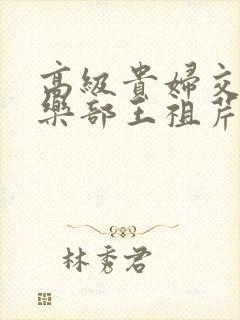 高級貴婦交
樂部王祖芹
林秀君